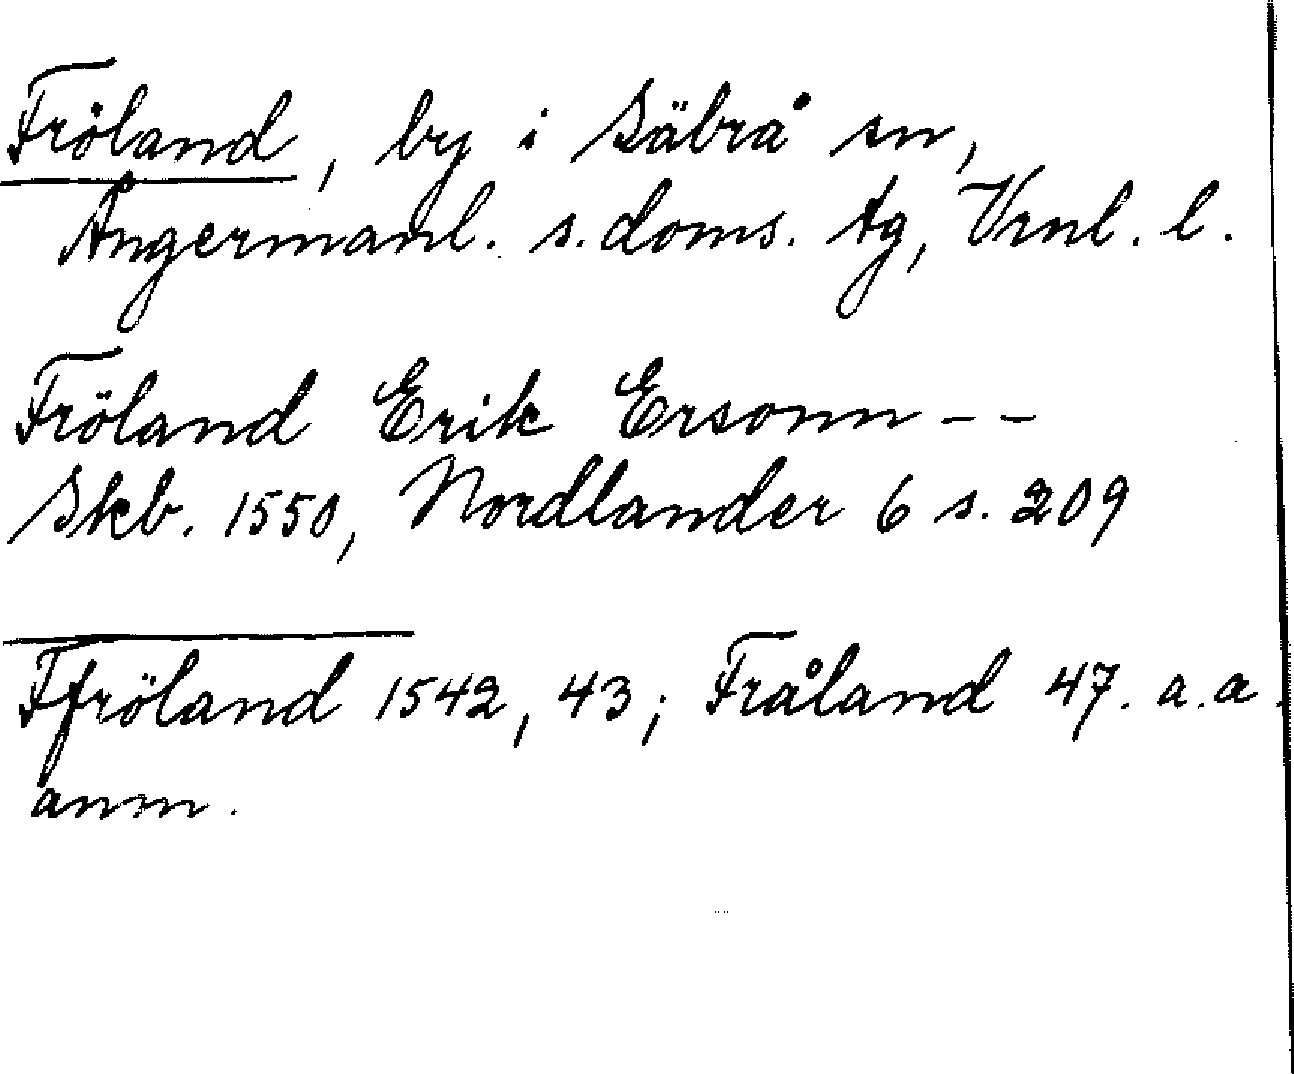 Fröland, by i Säbrå sn,
Ångermanl. s. doms. tg, Vrnl. l.
Fröland Erik Ersonn - -
Skb. 1550, Nordlander 6 s. 209
Ffröland 1542, 43; Fråland 47. a.a.
anm.